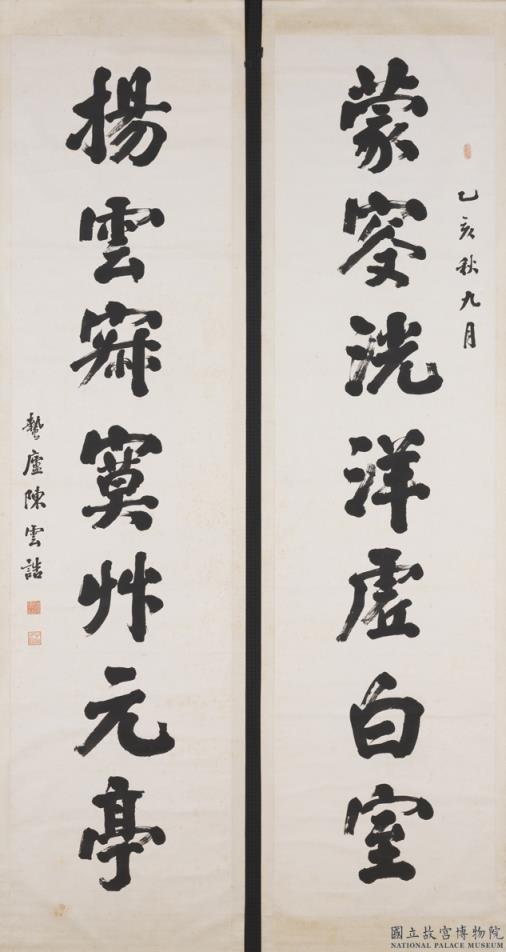 乙亥秋九月
蒙叟洸洋虛白室
揚雲寂寞艸元亭
蟄廬陳雲誥
國立故宮博物院
NATIONAL PALACE MUSEUM